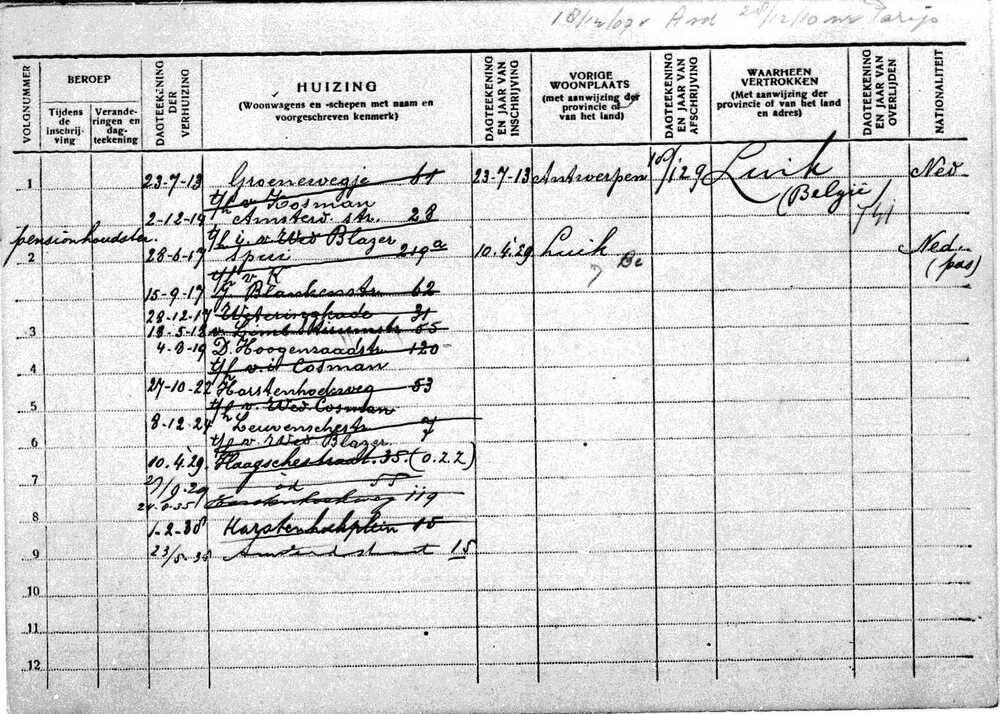 18/12/07 v And 28/12/10 nr Parijs
VOLGNUMMER
BEROEP
Tijdens de inschrijving
Veranderingen en dagteekening
DAGTEEKENING DER VERHUIZING
HUIZING
(Woonwagens en -schepen met naam en voorgeschreven kenmerk)
DAGTEEKENING EN JAAR VAN INSCHRIJVING
VORIGE WOONPLAATS
(met aanwijzing der provincie of van het land)
DAGTEEKENING EN JAAR VAN AFSCHRIJVING
WAARHEEN VERTROKKEN
(Met aanwijzing der provincie of van het land en adres)
DAGTEEKENING EN JAAR VAN OVERLIJDEN
NATIONALITEIT
1 23-7-13 Groenewegje 61 23-7-13 Antwerpen Luik Ned
t/h v Kosman (België
2-12-14 Amsterd str. 28
pensionhoudster. t/h v. Wed Blazer
2 28-6-17 Spui 219a 10.4.29 Luik Ned.
t/h v. K (pas)
15-9-17 Blankenstr 62
28-12-17 Weteringkade 31
3 55
4-8-19 D. Hoogenraadstr. 120
4 Cosman
27-10-22 Harstenhoekweg 53
5 t/h v. Wed Cosman
8-12-24 Leuvenschestr 7
6 t/h v. Wed Blazer
10.4.29. Haagschestraat. 35. (O.Z.Z)
7 id 55
Harstenhoekweg 119
8 1-2-38 Harstenhoekplein 15
9 23/5-38 Amsterdstraat 15
10
11
12